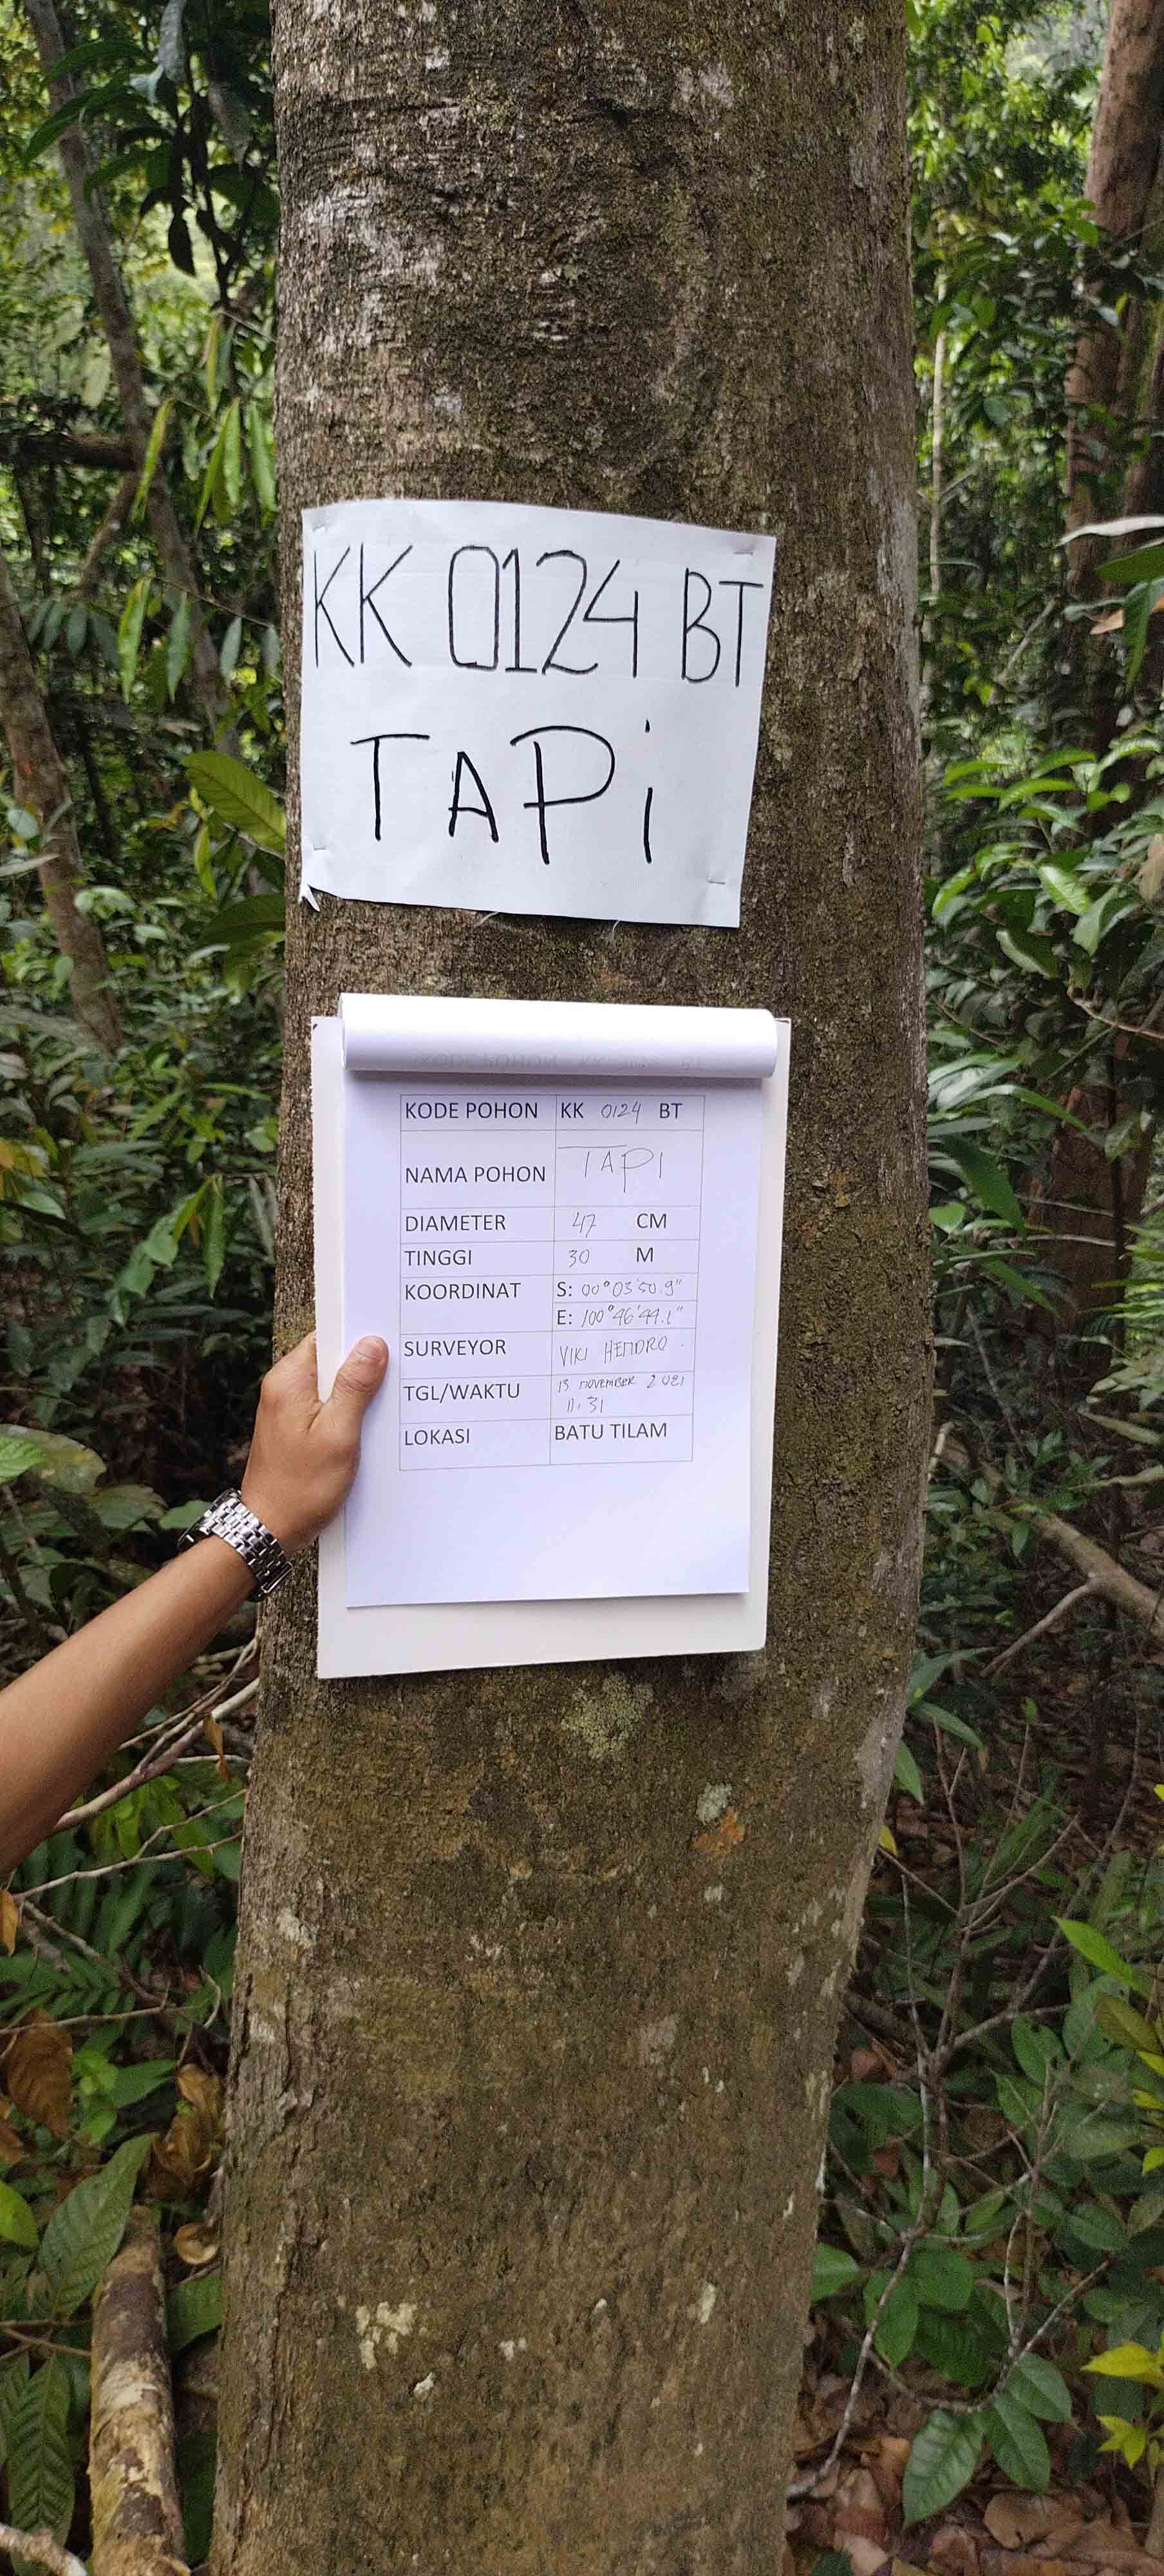 KK 0124 BT
TAPi
KODE POHON KK 0124 BT
NAMA POHON TAPI
DIAMETER 47 CM
TINGGI 30 M
KOORDINAT S: 00°03'50.9"
E: 100°46'44.1"
SURVEYOR VIKI HENDRO.
TGL/WAKTU 13 NOVEMBER 2021
11.31
LOKASI BATU TILAM